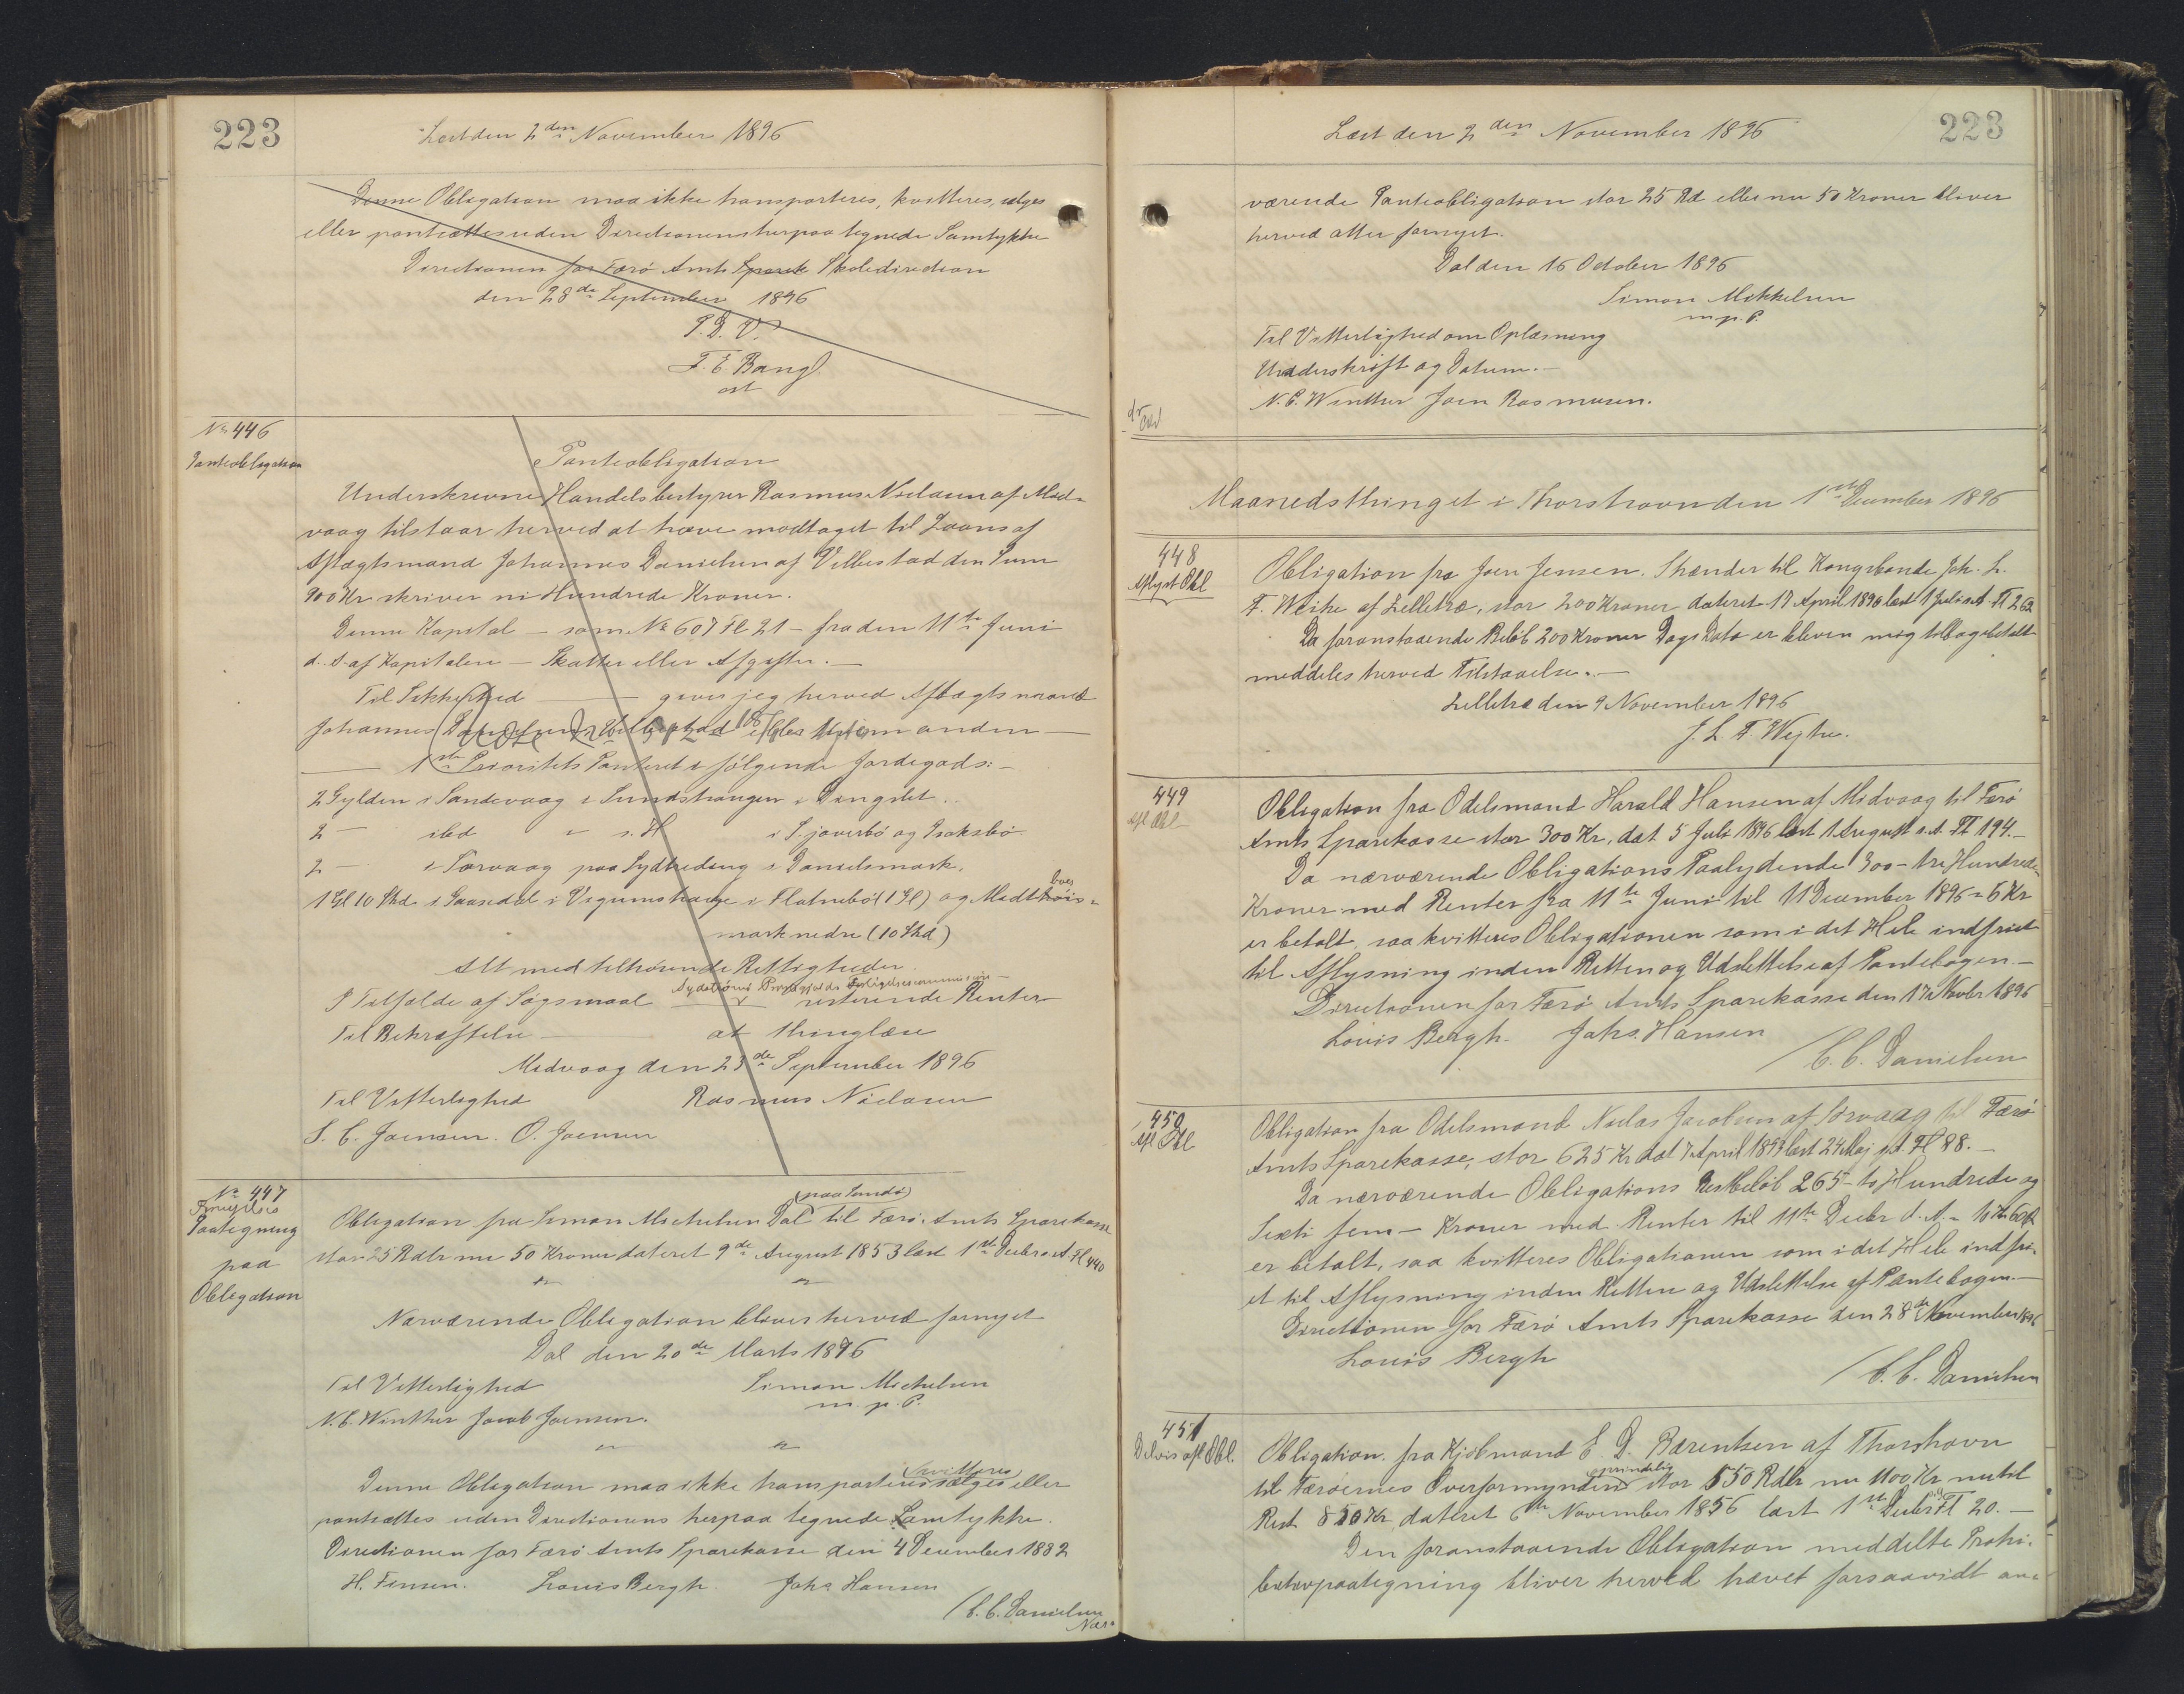 223
Læst den 2den November 1896
Denne Obligation maa ikke transporteres, kvitteres, sælges
eller pantsættes uden Directionens herpaa tegnede Samtykke
Directionen for Færø Amts Sparek Skoledirection
den 28de September 1896
P. D. V.
F. E. Bang
cst
No 446
Panteobligation
Panteobligation
Underskrevne Handelsbestyrer Rasmus Niclasen af Mid-
vaag tilstaar herved at have modtaget til Laans af
Aftægtsmand Johannes Danielsen af Velbestad den Sum
900 Kr skriver ni Hundrede Kroner.
Denne Kapital – som No 607 Fl 21 – fra den 11te Juni
d. A. af Kapitalen – Skatter eller Afgifter. –
Til Sikkerhed – giver jeg herved Aftægtsmand
Johannes Danielsen af Velbestad eller anden –
– 1ste Prioritets Panteret i følgende Jordegods: –
2 Gylden i Sandevaag i Sundshaugen i Dingslet..
2 – ibd " s. H i S. javerbø og Isaksbø
2 – i Sørvaag paa Sydtredeng i Danielsmark.
1 Gl 10 Skd i Gaasedal i Vegumshauge i Flatnebø (1 Gl) og Medtkøis-
boes
mark nedre (10 Skd)
Alt med tilhørende Rettigheder
I Tilfælde af Søgsmaal – Sydstrømø Præstegjælds Forligelseskommission – resterende Renter
Til Bekræftelse – at thinglæse
Midvaag den 23de September 1896
Til Vitterlighed Rasmus Niclasen
S. C. Joensen. O. Joensen
No 447
Fornyelses
Paategning
paa
Obligation
(paa Sandø)
Obligation fra Simon Michelsen Dal til Færø Amts Sparekasse
stor 25 Rdlr nu 50 Kroner dateret 9de August 1853 læst 1ste Decbr s. A. Fl 440
" "
Nærværende Obligation bliver herved fornyet
Dal den 20de Marts 1876
Til Vitterlighed Simon Michelsen
N. C. Winther Jacob Joensen. m. p. P.
" "
Denne Obligation maa ikke transporteres kvitteres sælges eller
pantsættes uden Directionens herpaa tegnede Samtykke.
Directionen for Færø Amts Sparekasse den 4 December 1882
H. Finsen. Louis Bergh. Johs Hansen
/ C. C. Danielsen
Nær-
Læst den 2den November 1896
223
værende Panteobligation stor 25 Rd eller nu 50 Kroner bliver
herved atter fornyet.
Dal den 16 October 1896
Simon Mikkelsen
m. p. P.
Til Vitterlighed om Oplæsning
Underskrift og Datum. –
N. C. Winther Joen Rasmussen.
Maanedsthinget i Thorshavn den 1ste December 1896
448
Aflyst Obl
Obligation fra Joen Jensen. Skænder til Kongsbonde Joh. L.
F. Weihe af Lelletræ, stor 200 Kroner dateret 17 April 1890 læst 1 Juli s. A. Fl 262
Da foranstaaende Beløb 200 Kroner Dags Dato er bleven mig tilbagebetalt
meddeles herved Tilstaaelse. –
Lelletræ den 9 November 1896
J. L. F. Weyhe.
449
Afl Obl
Obligation fra Odelsmand Harald Hansen af Midvaag til Færø
Amts Sparekasse stor 300 Kr, dat 5 Juli 1896 læst 1 August s. A. Fl 194. –
Da nærværende Obligations Paalydende 300 – tre Hundrede
Kroner med Renter fra 11te Juni til 11 December 1896 = 6 Kr
er betalt, saa kvitteres Obligationen som i det Hele indfriet
til Aflysning inden Retten og Udslettelse af Pantebogen. –
Directionen for Færø Amts Sparekasse den 17 Novbr 1896
Louis Bergh. Johs. Hansen
/ C. C. Danielsen
450
Afl Obl
Obligation fra Odelsmand Niclas Jacobsen af Sørvaag til Færø
Amts Sparekasse, stor 625 Kr dat 7 April 1893 læst 24 Maj s. A. Fl 88. –
Da nærværende Obligations Restbeløb 265 – to Hundrede og
Sexti fem – Kroner med Renter til 11te Decbr d. A. = 10 Kr 60 Ø
er betalt, saa kvitteres Obligationen som i det Hele indfri-
et til Aflysning inden Retten og Udslettelse af Pantebogen. –
Directionen for Færø Amts Sparekasse den 28de November 1896
Louis Bergh
/ C. C. Danielsen
451
Delvis afl Obl.
Obligation fra Kjøbmand E D. Bærentsen af Thorshavn
til Færøernes Overformynderi oprindelig stor 550 Rdlr nu 1100 Kr nu til
Rest 850 Kr dateret 6te November 1856 læst 1ste Decbr Fl 20. –
Den foranstaaende Obligation meddelte Prohi-
bitivpaategning bliver herved hævet forsaavidt an-